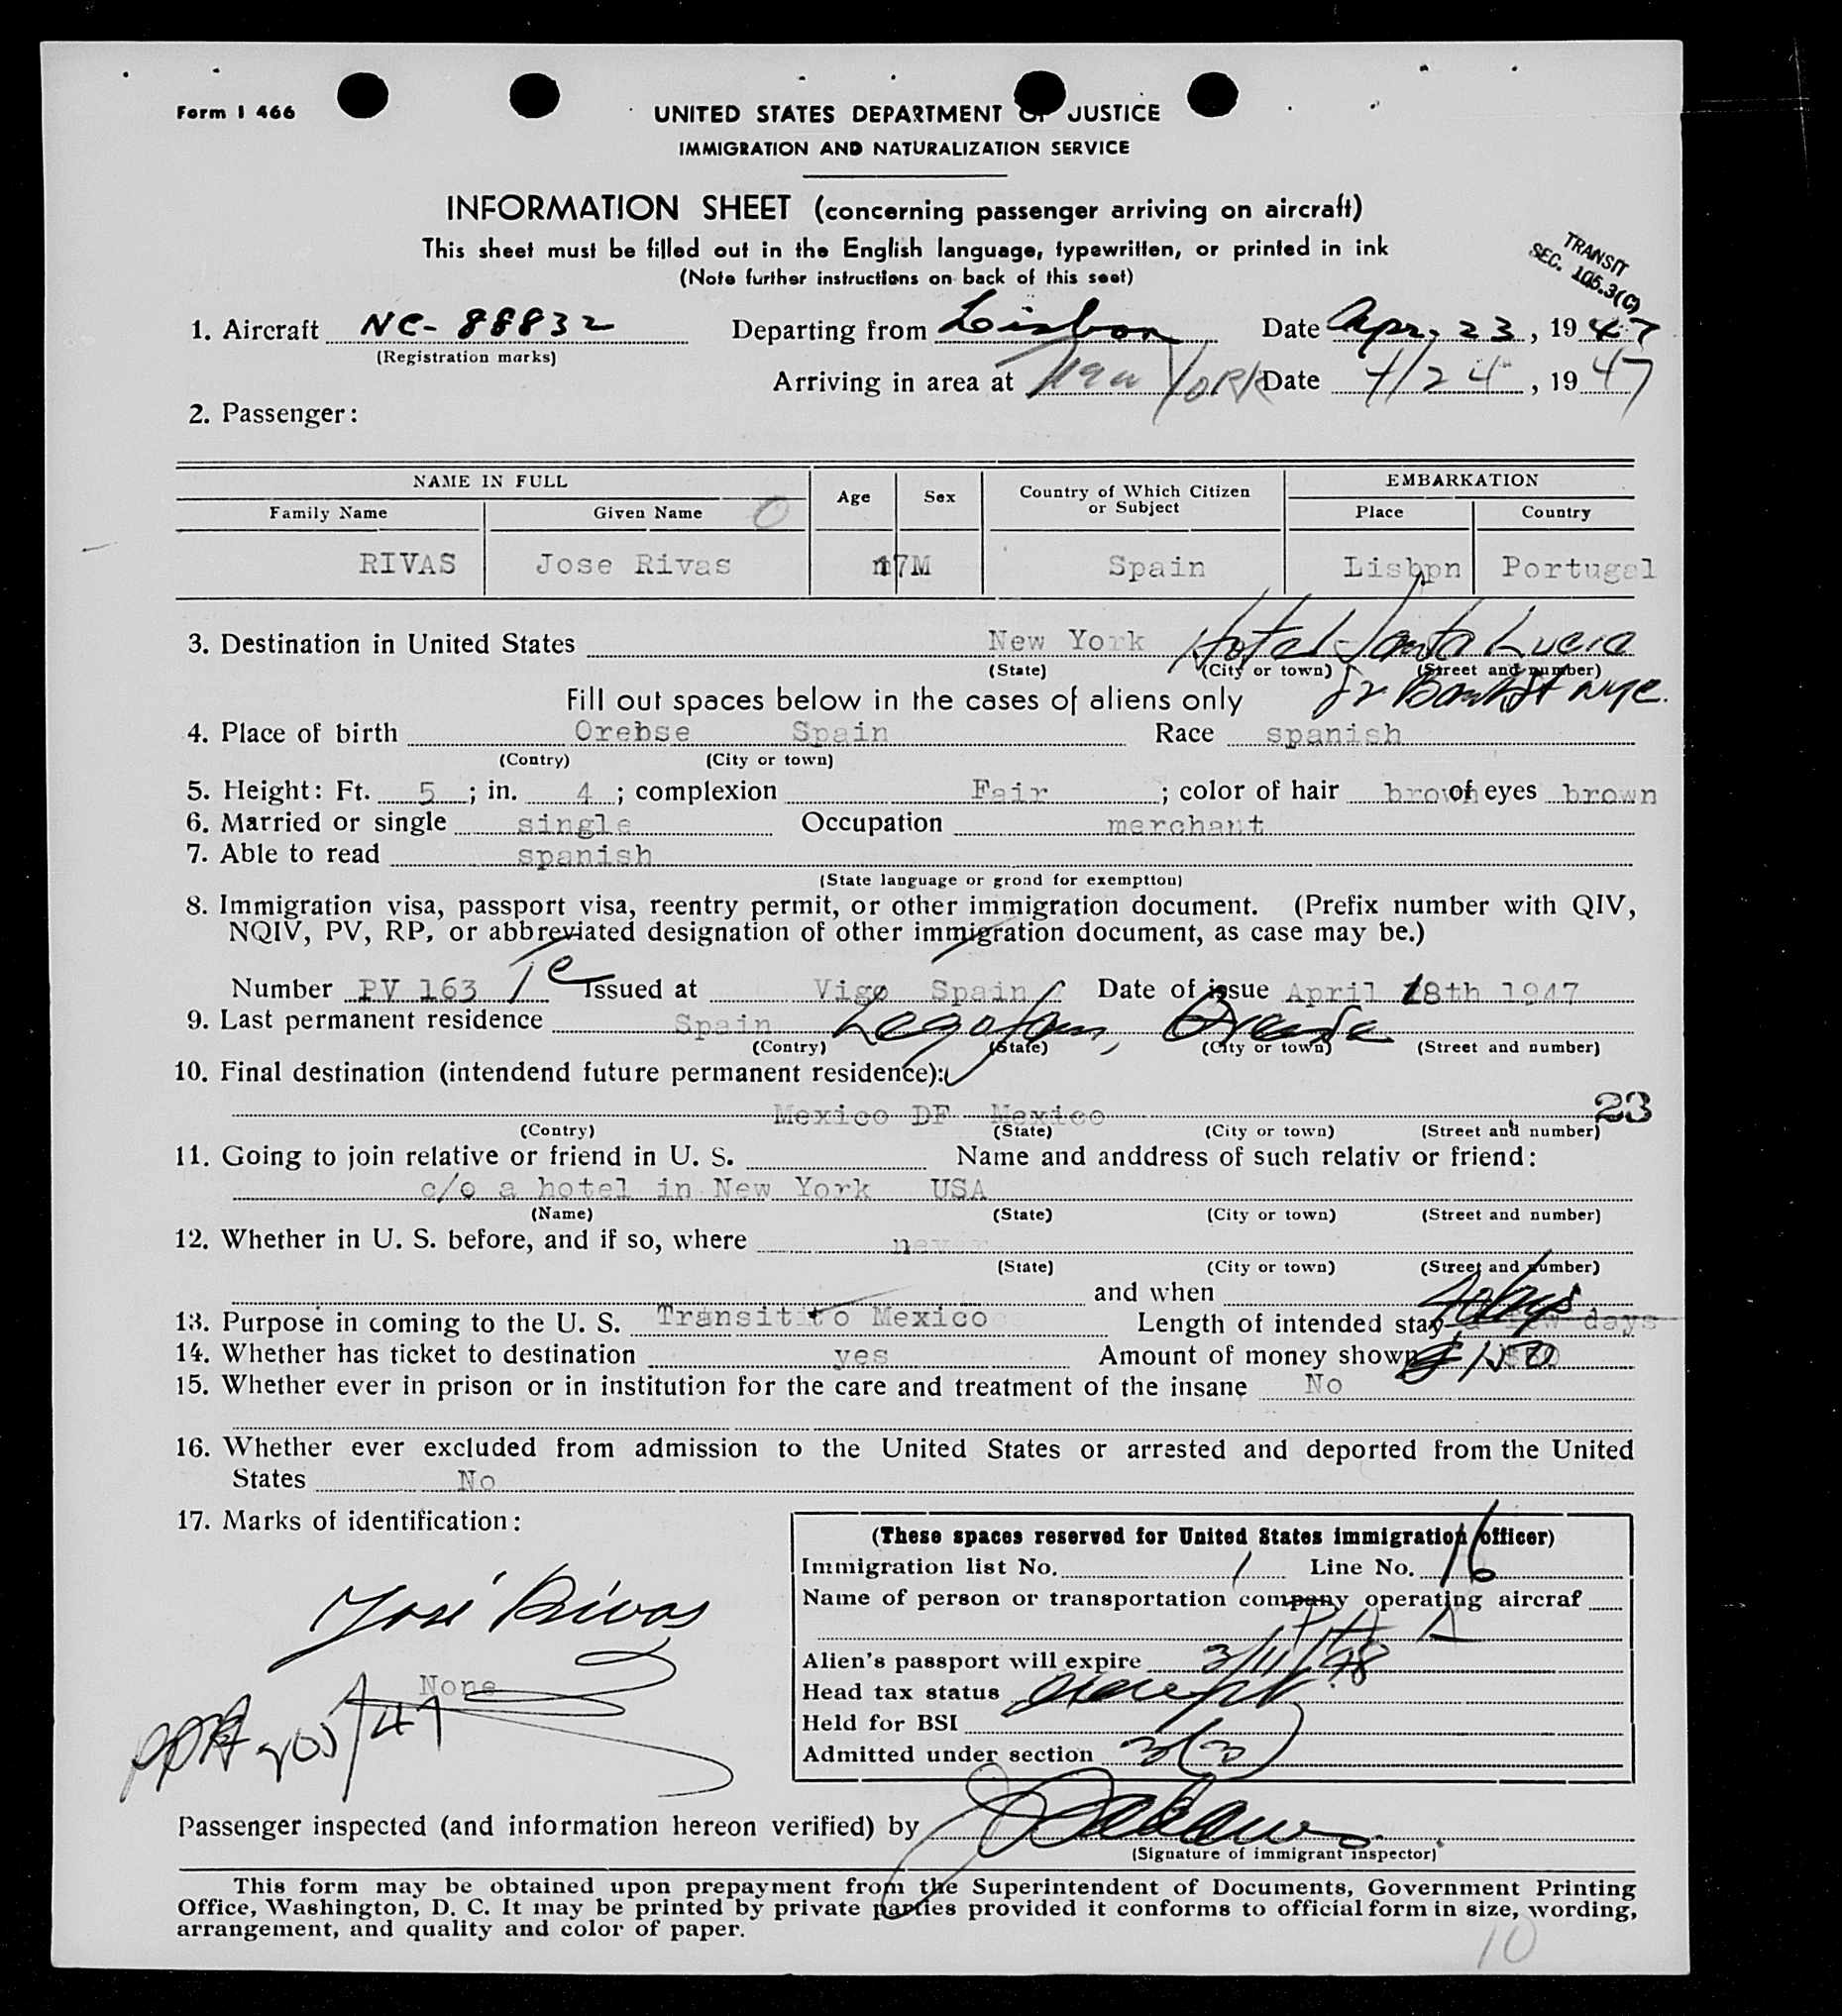 Form I 466
UNITED STATES DEPARTMENT OF JUSTICE
IMMIGRATION AND NATURALIZATION SERVICE
INFORMATION SHEET (concerning passenger arriving on aircraft)
This sheet must be filled out in the English language, typewritten, or printed in ink
(Note further instructions on back of this seet)
TRANSIT
SEC. 105.3(C)
1. Aircraft NC-88832 Departing from Lisbon Date Apr. 23, 1947
(Registration marks)
Arriving in area at New York Date 4/24, 1947
2. Passenger:
NAME IN FULL Age Sex Country of Which Citizen or Subject EMBARKATION
Family Name Given Name Place Country
RIVAS Jose Rivas 17 M Spain Lisbpn Portugal
3. Destination in United States New York Hotel Santa Lucia
(State) (City or town) (Street and number)
Fill out spaces below in the cases of aliens only NYC.
4. Place of birth Orebse Spain Race spanish
(Contry) (City or town)
5. Height: Ft. 5; in. 4; complexion Fair; color of hair brown of eyes brown
6. Married or single single Occupation merchant
7. Able to read spanish
(State language or grond for exemptton)
8. Immigration visa, passport visa, reentry permit, or other immigration document. (Prefix number with QIV,
NQIV, PV, RP, or abbreviated designation of other immigration document, as case may be.)
Number PV 163 Issued at Vigo Spain Date of issue April 18th 1947
9. Last permanent residence Spain
(Contry) (State) (City or town) (Street and number)
10. Final destination (intendend future permanent residence):
Mexico DF Mexico 23
(Contry) (State) (City or town) (Street and number)
11. Going to join relative or friend in U. S. Name and anddress of such relativ or friend:
c/o a hotel in New York USA
(Name) (State) (City or town) (Street and number)
12. Whether in U. S. before, and if so, where never
(State) (City or town) (Street and number)
and when
13. Purpose in coming to the U. S. Transit to Mexico Length of intended stay a few days
14. Whether has ticket to destination yes Amount of money shown $150
15. Whether ever in prison or in institution for the care and treatment of the insane No
16. Whether ever excluded from admission to the United States or arrested and deported from the United
States No
17. Marks of identification:
José Rivas
None
(These spaces reserved for United States immigration officer)
Immigration list No. 1 Line No. 16
Name of person or transportation company operating aircraf
PAA
Alien's passport will expire 3/11/48
Head tax status exempt
Held for BSI
Admitted under section 3(3)
Passenger inspected (and information hereon verified) by
(Signature of immigrant inspector)
This form may be obtained upon prepayment from the Superintendent of Documents, Government Printing
Office, Washington, D. C. It may be printed by private parties provided it conforms to official form in size, wording,
arrangement, and quality and color of paper.
10